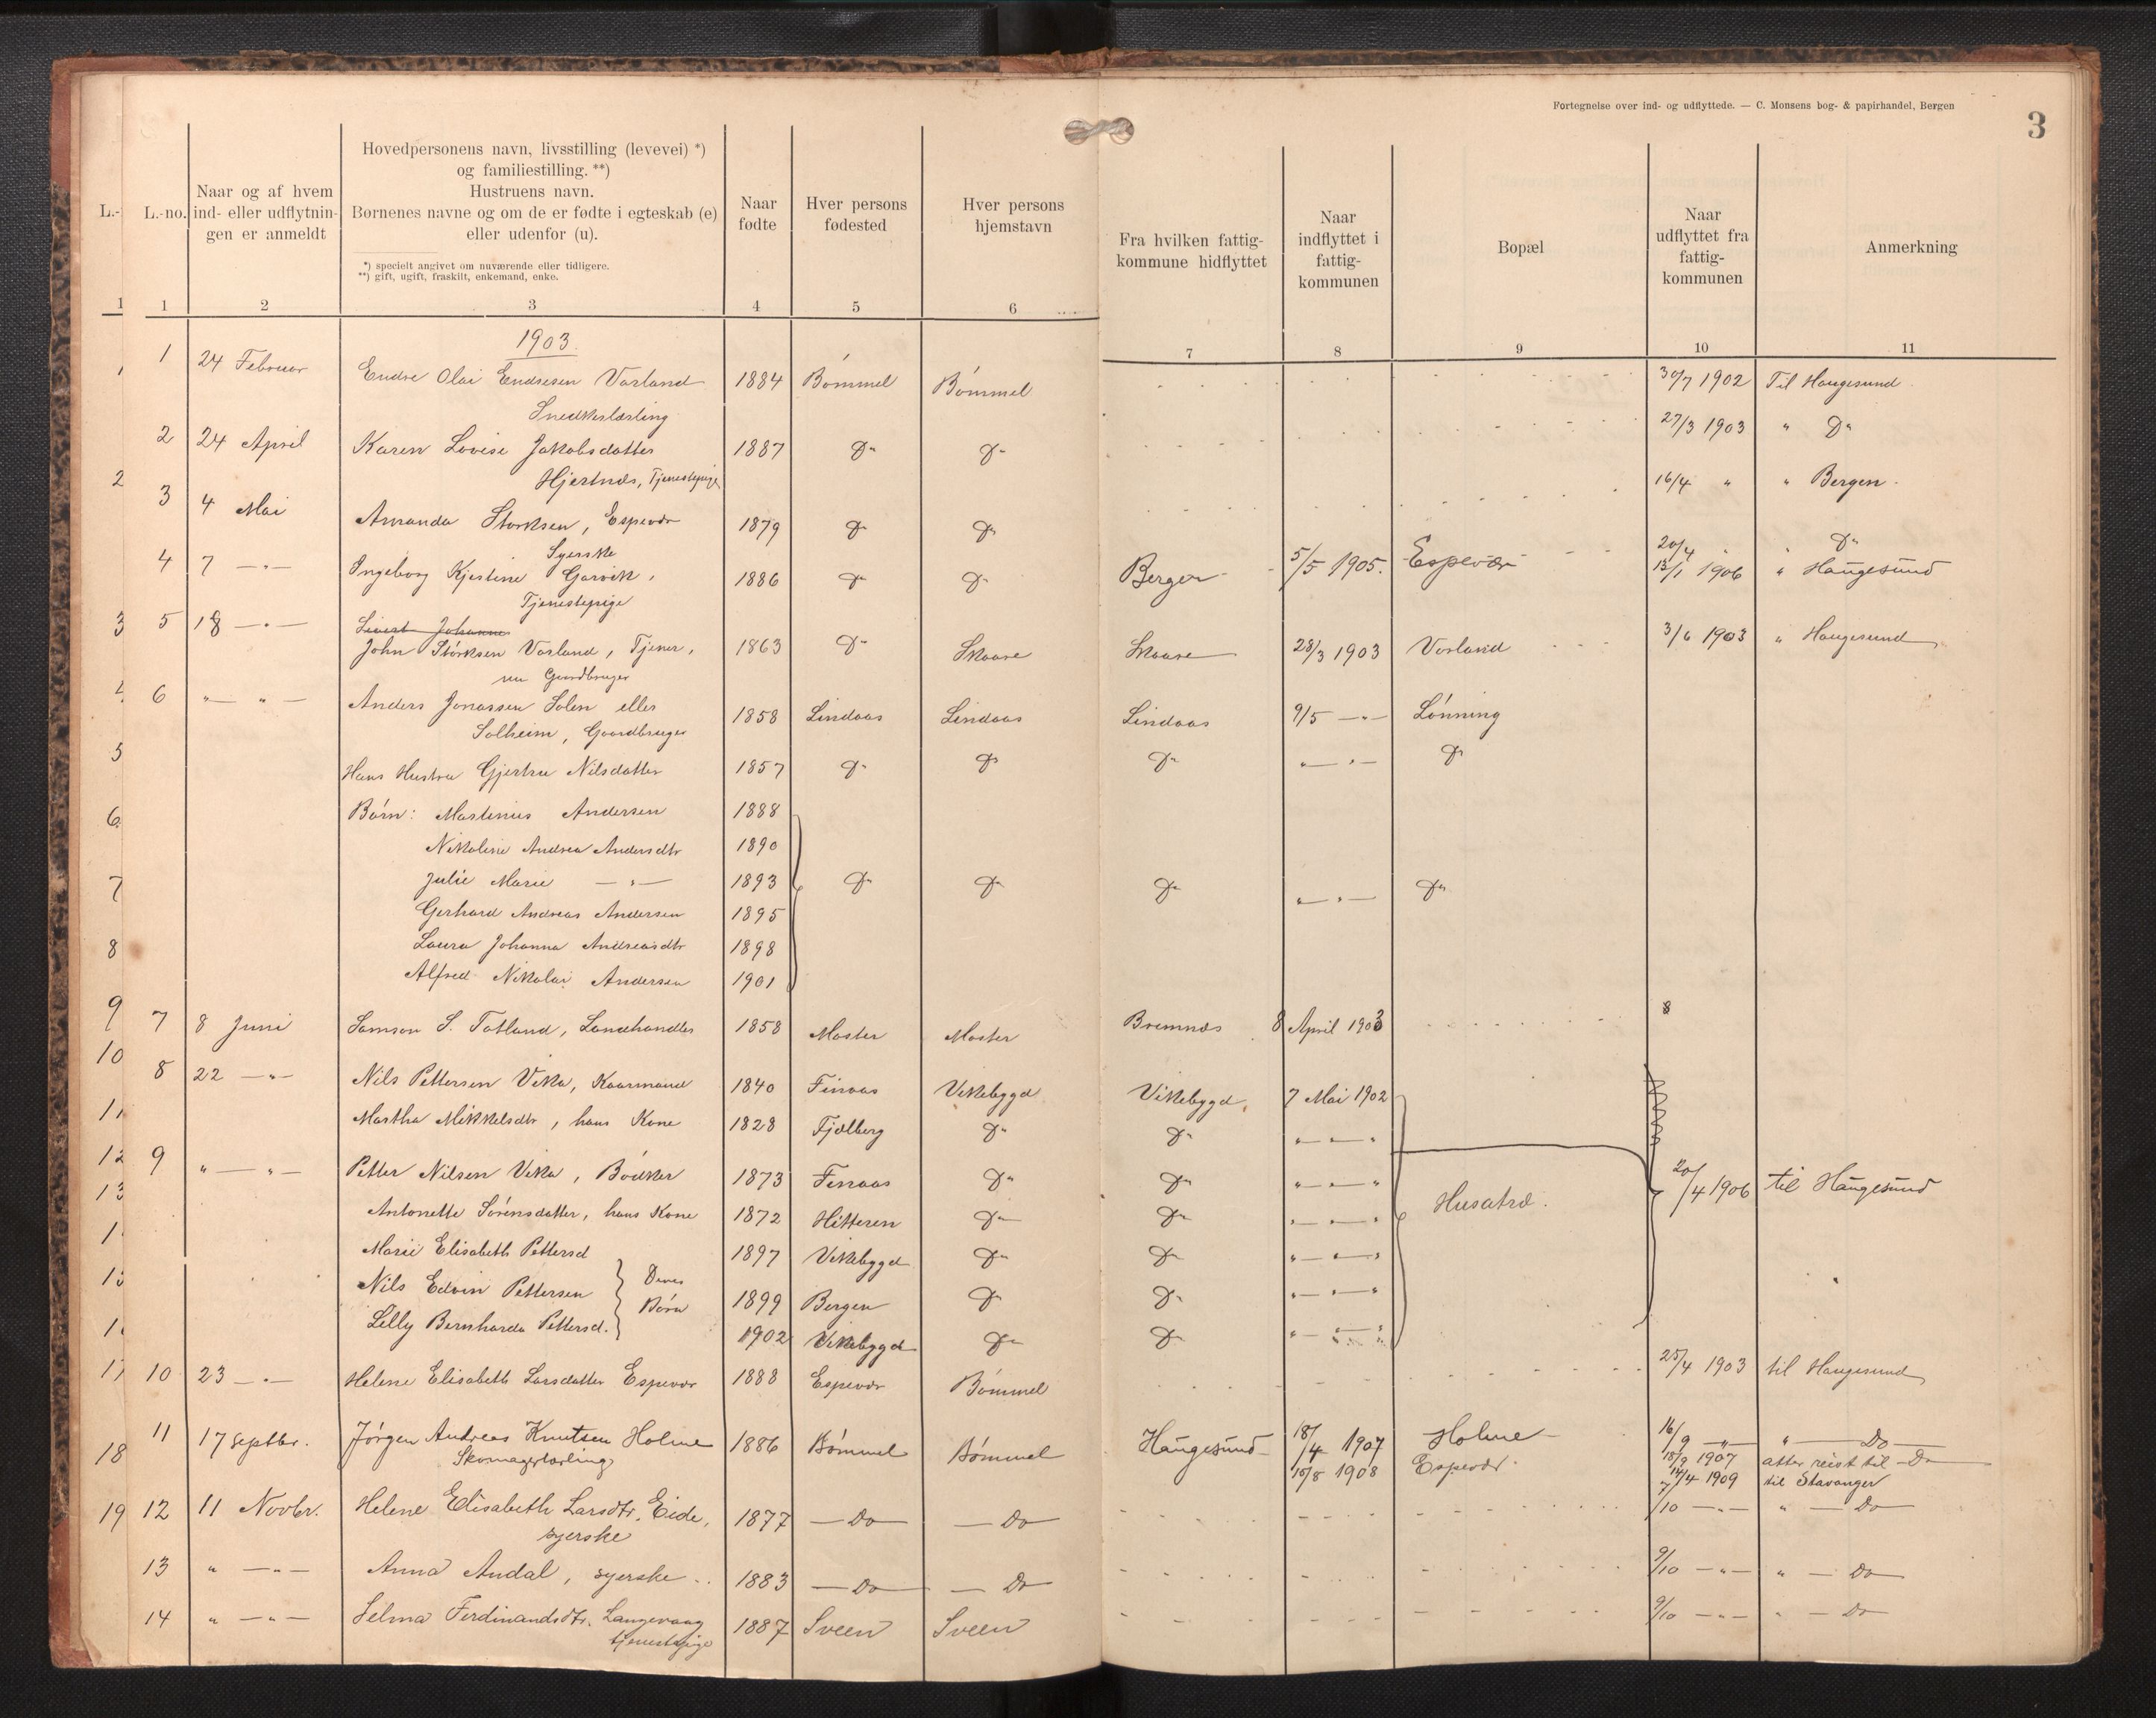 Fortegnelse over ind- og udflyttede. — C. Monsens bog- & papirhandel, Bergen
3
L.-
L.-no.
Naar og af hvem ind- eller udflytningen er anmeldt
Hovedpersonens navn, livsstilling (levevei) *)
og familiestilling. **)
Hustruens navn.
Børnenes navne og om de er fødte i egteskab (e)
eller udenfor (u).
*) specielt angivet om nuværende eller tidligere.
**) gift, ugift, fraskilt, enkemand, enke.
Naar fødte
Hver persons fødested
Hver persons hjemstavn
Fra hvilken fattig-kommune hidflyttet
Naar indflyttet i fattig-kommunen
Bopæl
Naar udflyttet fra fattig-kommunen
Anmerkning
1 1 2 3 4 5 6 7 8 9 10 11
1903
1 24 Februar Endre Olai Endresen Vorland 1884 Bømmel Bømmel 30/7 1902 Til Haugesund
Snedkerlærling
2 24 April Karen Lovise Jakobsdatter 1887 Do Do 27/3 1903 " Do
Hjertnæs, Tjenestepige
3 4 Mai Amanda Storksen, Espevær 1879 Do Do 16/4 " " Bergen
Syerske
4 7 — " — Ingeborg Kjerstine Garvik, 1886 Do Do Bergen 5/5 1905. Espevær 20/4 " " Do
Tjenestepige 13/1 1906 " Haugesund
5 18 — " — Sivert Johannes
John Størksen Vorland, Tjener, 1863 Do Skaare Skaare 28/3 1903 Vorland 3/6 1903 " Haugesund
nu Gaardbruger
6 " — " — Anders Jonassen Solen eller 1858 Lindaas Lindaas Lindaas 9/5 — " — Lønning
Solheim, Gaardbruger
Hans Hustru Gjertru Nilsdatter 1857 Do Do Do " — " — Do
Børn: Martinius Andersen 1888
Nikoline Andrea Andersdtr 1890
Julie Marie — " — 1893 Do Do Do " — " — Do
Gerhard Andreas Andersen 1895
Laura Johanna Andreasdtr 1898
Alfred Nikolai Andersen 1901
7 8 Juni Samson S. Totland, Landhandler 1858 Moster Moster Bremnes 8 April 1903 8
8 22 — " — Nils Pettersen Vika, Kaarmand 1840 Finaas Vikebygd Vikebygd 7 Mai 1902
Martha Mikkelsdtr, hans Kone 1828 Fjelberg Do Do " — " — "
9 " — " — Petter Nilsen Vika, Bødker 1873 Finaas Do Do " — " — " Husatræ. 20/4 1906 til Haugesund
Antonette Sørensdatter, hans Kone 1872 Hitteren Do Do " — " — "
Marie Elisabeth Pettersd 1897 Vikebygd Do Do " — " — "
Nils Edvin Pettersen } Deres Børn 1899 Bergen Do Do " — " — "
Lilly Bernharda Pettersd. 1902 Vikebygd Do Do " — " — "
10 23 — " — Helene Elisabeth Larsdatter Espevær 1888 Espevær Bømmel 25/4 1903 til Haugesund
11 17 Septbr. Jørgen Andreas Knutsen Holme 1886 Bømmel Bømmel Haugesund 18/4 1907 Holme 16/9 — " — " — Do —
Skomagerlærling 15/8 1908 Espevær. 18/9 1907 atter reist til Do
14/4 1909 til Stavanger
12 11 Novbr. Helene Elisabeth Larsdtr. Eide, 1877 — Do — — Do — 7/10 — " — " — Do
syerske
13 " — " — Anna Andal, syerske 1883 — Do — — Do 9/10 — " — " — Do
14 " — " — Selma Ferdinandsdtr. Langevaag 1887 Sveen Sveen 9/10 — " — " — Do
tjenestepige
2
3
5
6
7
8
9
10
11
12
13
17
18
19